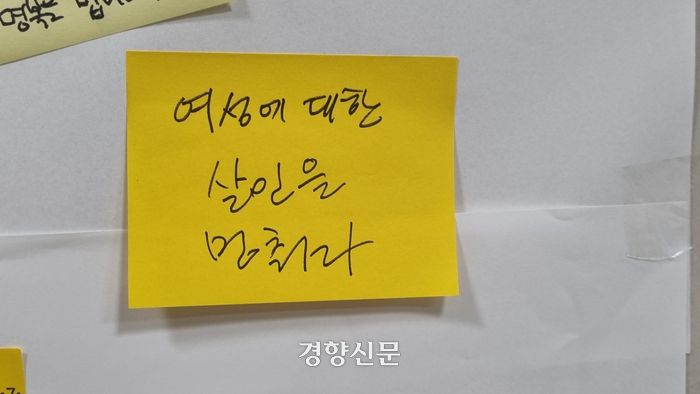 명복을 빕니다
여성에 대한
살인을
멈춰라
경향신문